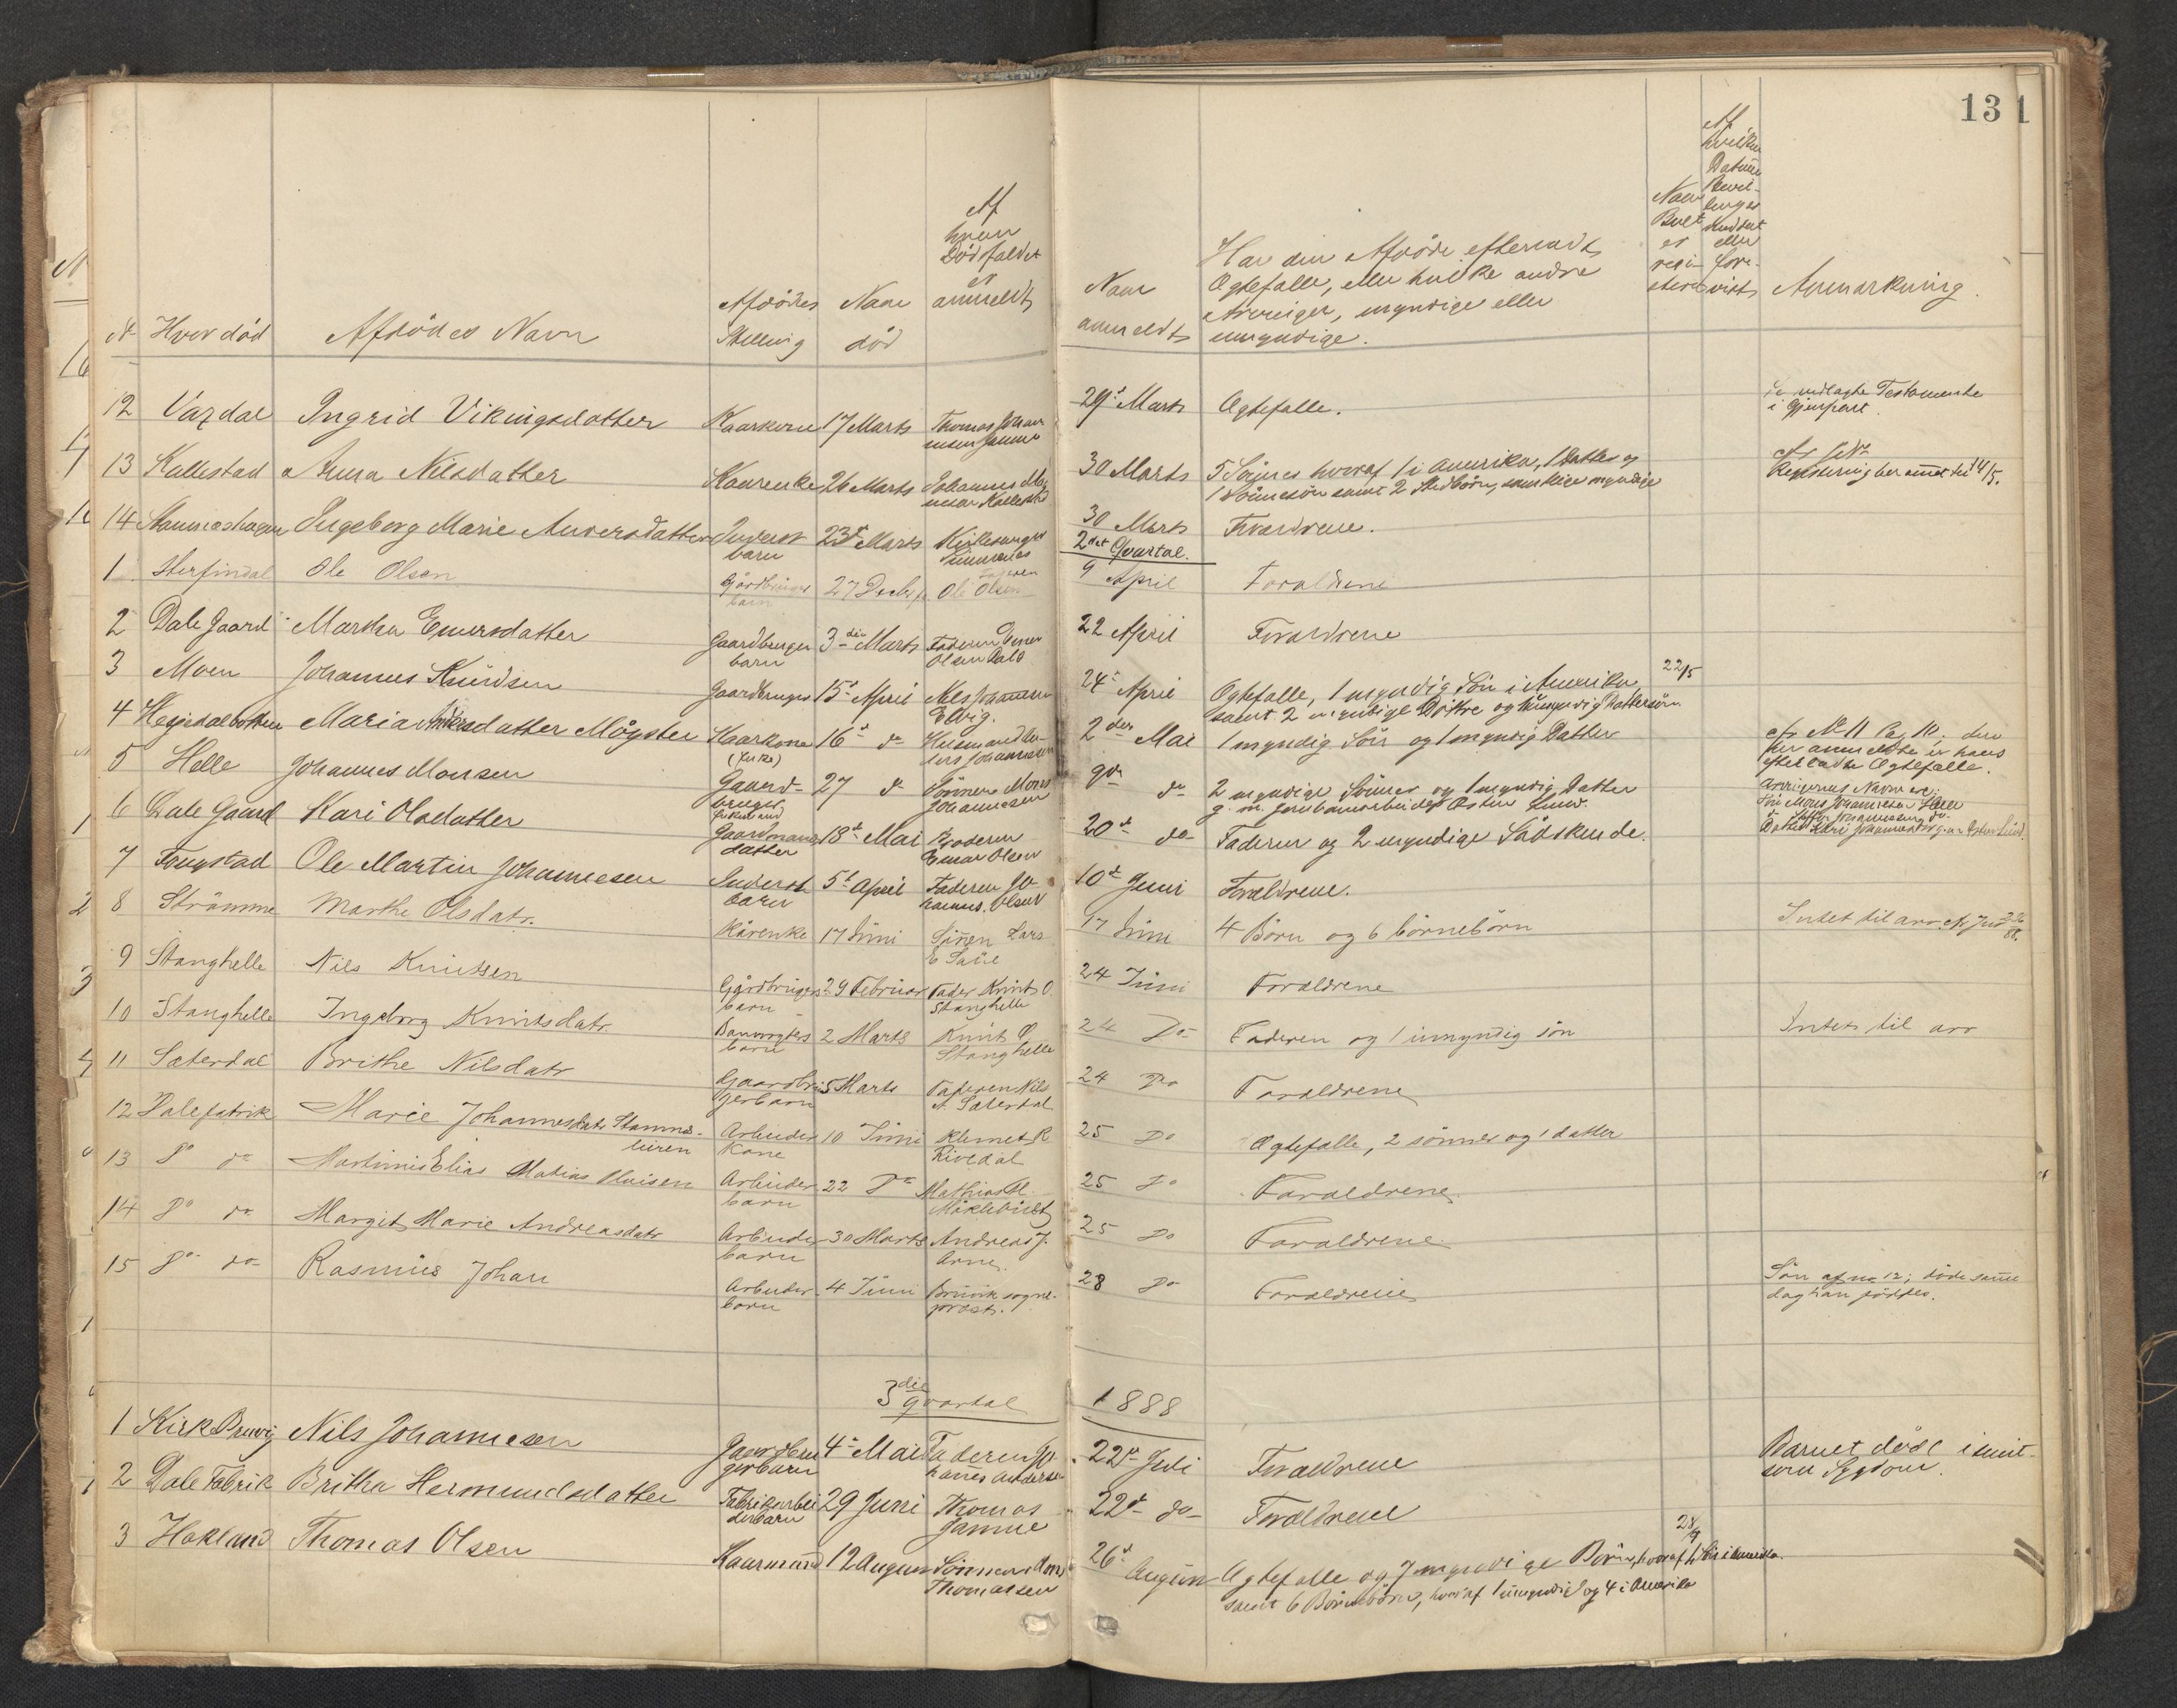 13
Af
hvem
Dødsfaldet
er
anmeldt
N Hvor død Afdødes Navn Afdødes Stilling Naar død
Naar anmeldt
Har den Afdøde efterladt
Ægtefælle, eller hvilke andre
Arvinger, myndige eller
umyndige.
Naar
Boet
er
regi-
streret
Af
hvilken
Datum
Bevil-
linger
meddelt
eller
fore-
vist
Anmærkning.
12 Vardal Ingrid Vikingsdatter Kaarkone 17 Marts Thomas Johan-
nesen Jamne
29de Marts Ægtefælle.
Se indlagte Testamente
i Gjenpart.
13 Kallestad Anna Nilsdatter Kaarenke 26 Marts Johannes Mag-
nesen Kallestad
30 Marts 5 Sønner hvoraf 1 i Amerika, 1 Datter og
1 Sønnesøn samt 2 Stedbørn, samtlige myndige
Registrering ber. am̅et til 14/5.
14 Stamneshagen Ingeborg Marie Andersdatter Inderst
barn 23de Marts Kirkesanger
Simonnes
30 Marts Forældrene.
2det Qvartal.
1 Herfindal Ole Olsen Gårdbruger
barn 27 Decbr f. Faderen
Ole Olsen
9 April Forældrene
2 Dale Gaard Martha Einersdatter Gaardbruger
barn 3die Marts Faderen Einer
Olsen Dale
22 April Forældrene
3 Moen Johannes Knudsen Gaardbruger 15de April Nils Johannesen
Elvig.
24de April Ægtefælle, 1 myndig Søn i Amerika
samt 2 myndige Døttre og 1 umyndig Dattersøn
22/5
4 Hejndalbotten Maria Andersdatter Møyster Kaarkone
(Enke) 16de do Husmand La-
sers Johannesen
2den Mai 1 myndig Søn og 1 myndig Datter
cfr No 11 Pag 10. den
her anmeldte er hans
efterladte Ægtefælle.
5 Helle Johannes Monsen Gaard-
bruger
Enkemand 27 do Sønnen Mons
Johannesen
9de do 2 myndige Sønner og 1 myndig Datter
g. m. Jernbanearbeider Østen Lund.
Arvingernes Navne er:
Søn Mons Johannesen Helle
Johannesen do.
Datter Kari Johannesdtr g. m. Østen Lund
6 Dale Gaard Kari Olsdatter Gaardmands
datter 18de Mai Broderen
Einar Olsen
20de do Faderen og 2 myndige Sødskende.
7 Fougstad Ole Martin Johannesen Inderst
barn 5te April Faderen Jo-
hannes Olsen
10de Juni Forældrene.
8 Strømme Marthe Olsdatr. Kårenke 17 Juni Sønen Lars
E Saue
17 Juni 4 Børn og 6 børnebørn
Intet til arv. cfr Jno 336/88.
9 Stanghelle Nils Knutsen Gårdbrugers
barn 29 Februar Fader Knut O.
Stanghelle
24 Juni Forældrene
10 Stanghelle Ingeborg Knutsdatr Banevogters
barn 2 Marts Knut O
Stanghelle
24 Do Faderen og 1 umyndig søn
Intet til arv
11 Sæterdal Brithe Nilsdatr Gaardbru-
gerbarn 5 Marts Faderen Nils
A. Sæterdal
24 Do Forældrene
12 Dalefabrik Marie Johannesdatr Stamnes-
leiren Arbeider
Kone 10 Juni Klemet R
Rivedal
25 Do Ægtefælle, 2 sønner og 1 datter
13 Do do Martinius Elias Matias Olaisen Arbeider
barn 22 Do Mathias M.
Møklebust
25 Do Forældrene
14 Do do Margit Marie Andreasdatr Arbeider
barn 30 Marts Andreas J.
Arne.
25 Do Forældrene
15 Do do Rasmus Johan Arbeider
barn 4 Juni Bruvik sogne-
prest.
28 Do Forældrene
Søn af no 12; døde samme
dag han fødtes.
3die Qvartal 1888
1 Kirk Bruvig Nils Johannesen Gaardbru
gerbarn 4de Mai Faderen Jo-
hannes Andersen
22de Juli Forældrene
Barnet døde i smit-
som Sygdom.
2 Dale Fabrik Britha Hermundsdatter Fabrikarbei
derbarn 29 Juni Thomas
Jamne
22de do Forældrene
3 Hokland Thomas Olsen Kaarmand 12 August Sønnen Mons
Thomassen
26de August Ægtefælle og 7 myndige Børn, hvoraf 1 Søn i Amerika.
samt 6 Børnebørn, hvoraf 1 umyndig og 4 i Amerika
28/9